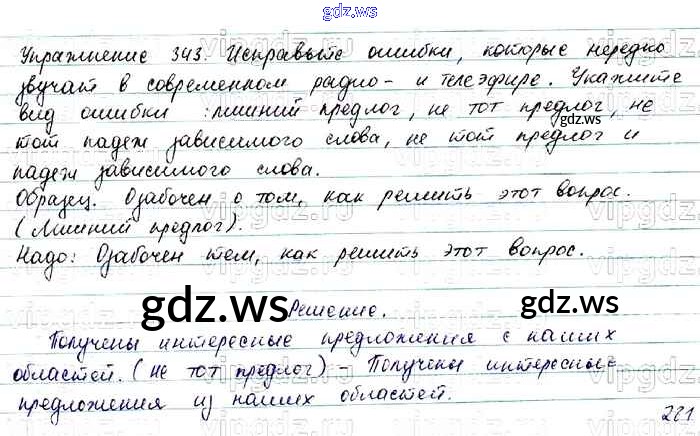 gdz.ws
Упражнение 343. Исправьте ошибки, которые нередко
звучат в современном радио- и телеэфире. Укажите
вид ошибки : лишний предлог, не тот предлог, не
тот падеж зависимого слова, не тот предлог и
падеж зависимого слова.
Образец. Озабочен о том, как решить этот вопрос.
(Лишний предлог).
Надо: Озабочен тем, как решить этот вопрос.
gdz.ws Решение. gdz.ws
Получены интересные предложения с наших
областей. (не тот предлог) - Получены интересные
предложения из наших областей.
221